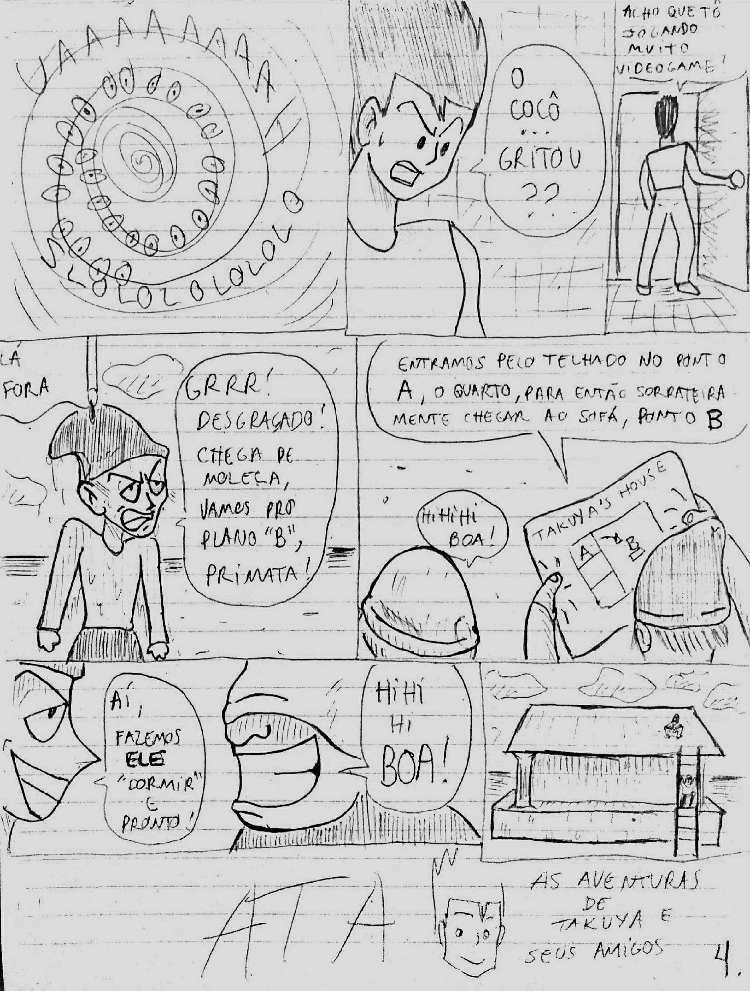 UAAAAAAAAH
SLOLOLOLOLOLO
O
COCÔ
...
GRITOU
??
ACHO QUE TÔ
JOGANDO
MUITO
VIDEOGAME!
LÁ
FORA
GRRR!
DESGRAÇADO!
CHEGA DE
MOLEZA,
VAMOS PRO
PLANO "B",
PRIMATA!
ENTRAMOS PELO TELHADO NO PONTO
A, O QUARTO, PARA ENTÃO SORRATEIRA
MENTE CHEGAR AO SOFÁ, PONTO B
HiHiHi
BOA!
TAKUYA'S HOUSE
A
B
AÍ,
FAZEMOS
ELE
"DORMIR"
E
PRONTO!
HiHi
Hi
BOA!
ATA
AS AVENTURAS
DE
TAKUYA E
SEUS AMIGOS
4.